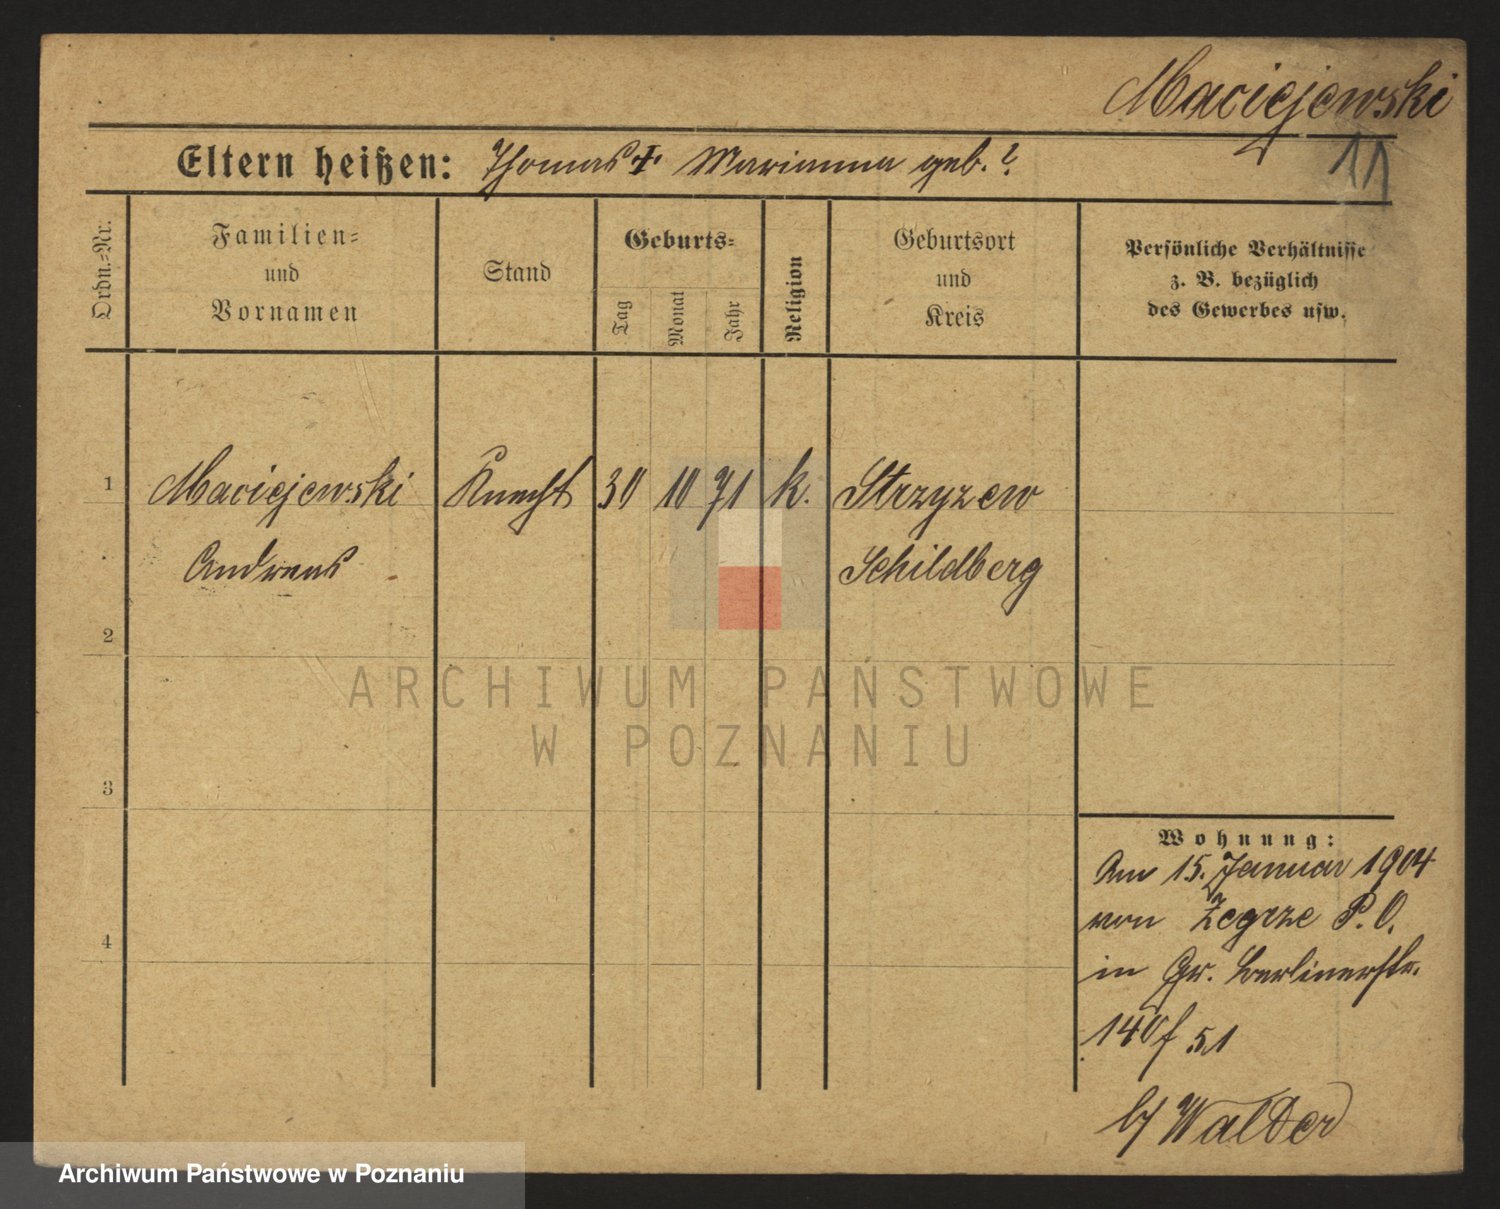 Maciejewski
11
Eltern heißen: Thomas + Marianna geb. ?
Ordn.-Nr.
Familien-
und
Vornamen
Stand
Geburts-
Tag
Monat
Jahr
Religion
Geburtsort
und
Kreis
Persönliche Verhältnisse
z. B. bezüglich
des Gewerbes usw.
1 Maciejewski Knecht 30 10 71 k. Strzyzew
Andreas Schildberg
2
3
4
Wohnung:
Am 15. Januar 1904
von Zegrze P. O.
in Gr. Berlinerstr.
140f 51
b/ Walder
ARCHIWUM PAŃSTWOWE
W POZNANIU
Archiwum Państwowe w Poznaniu